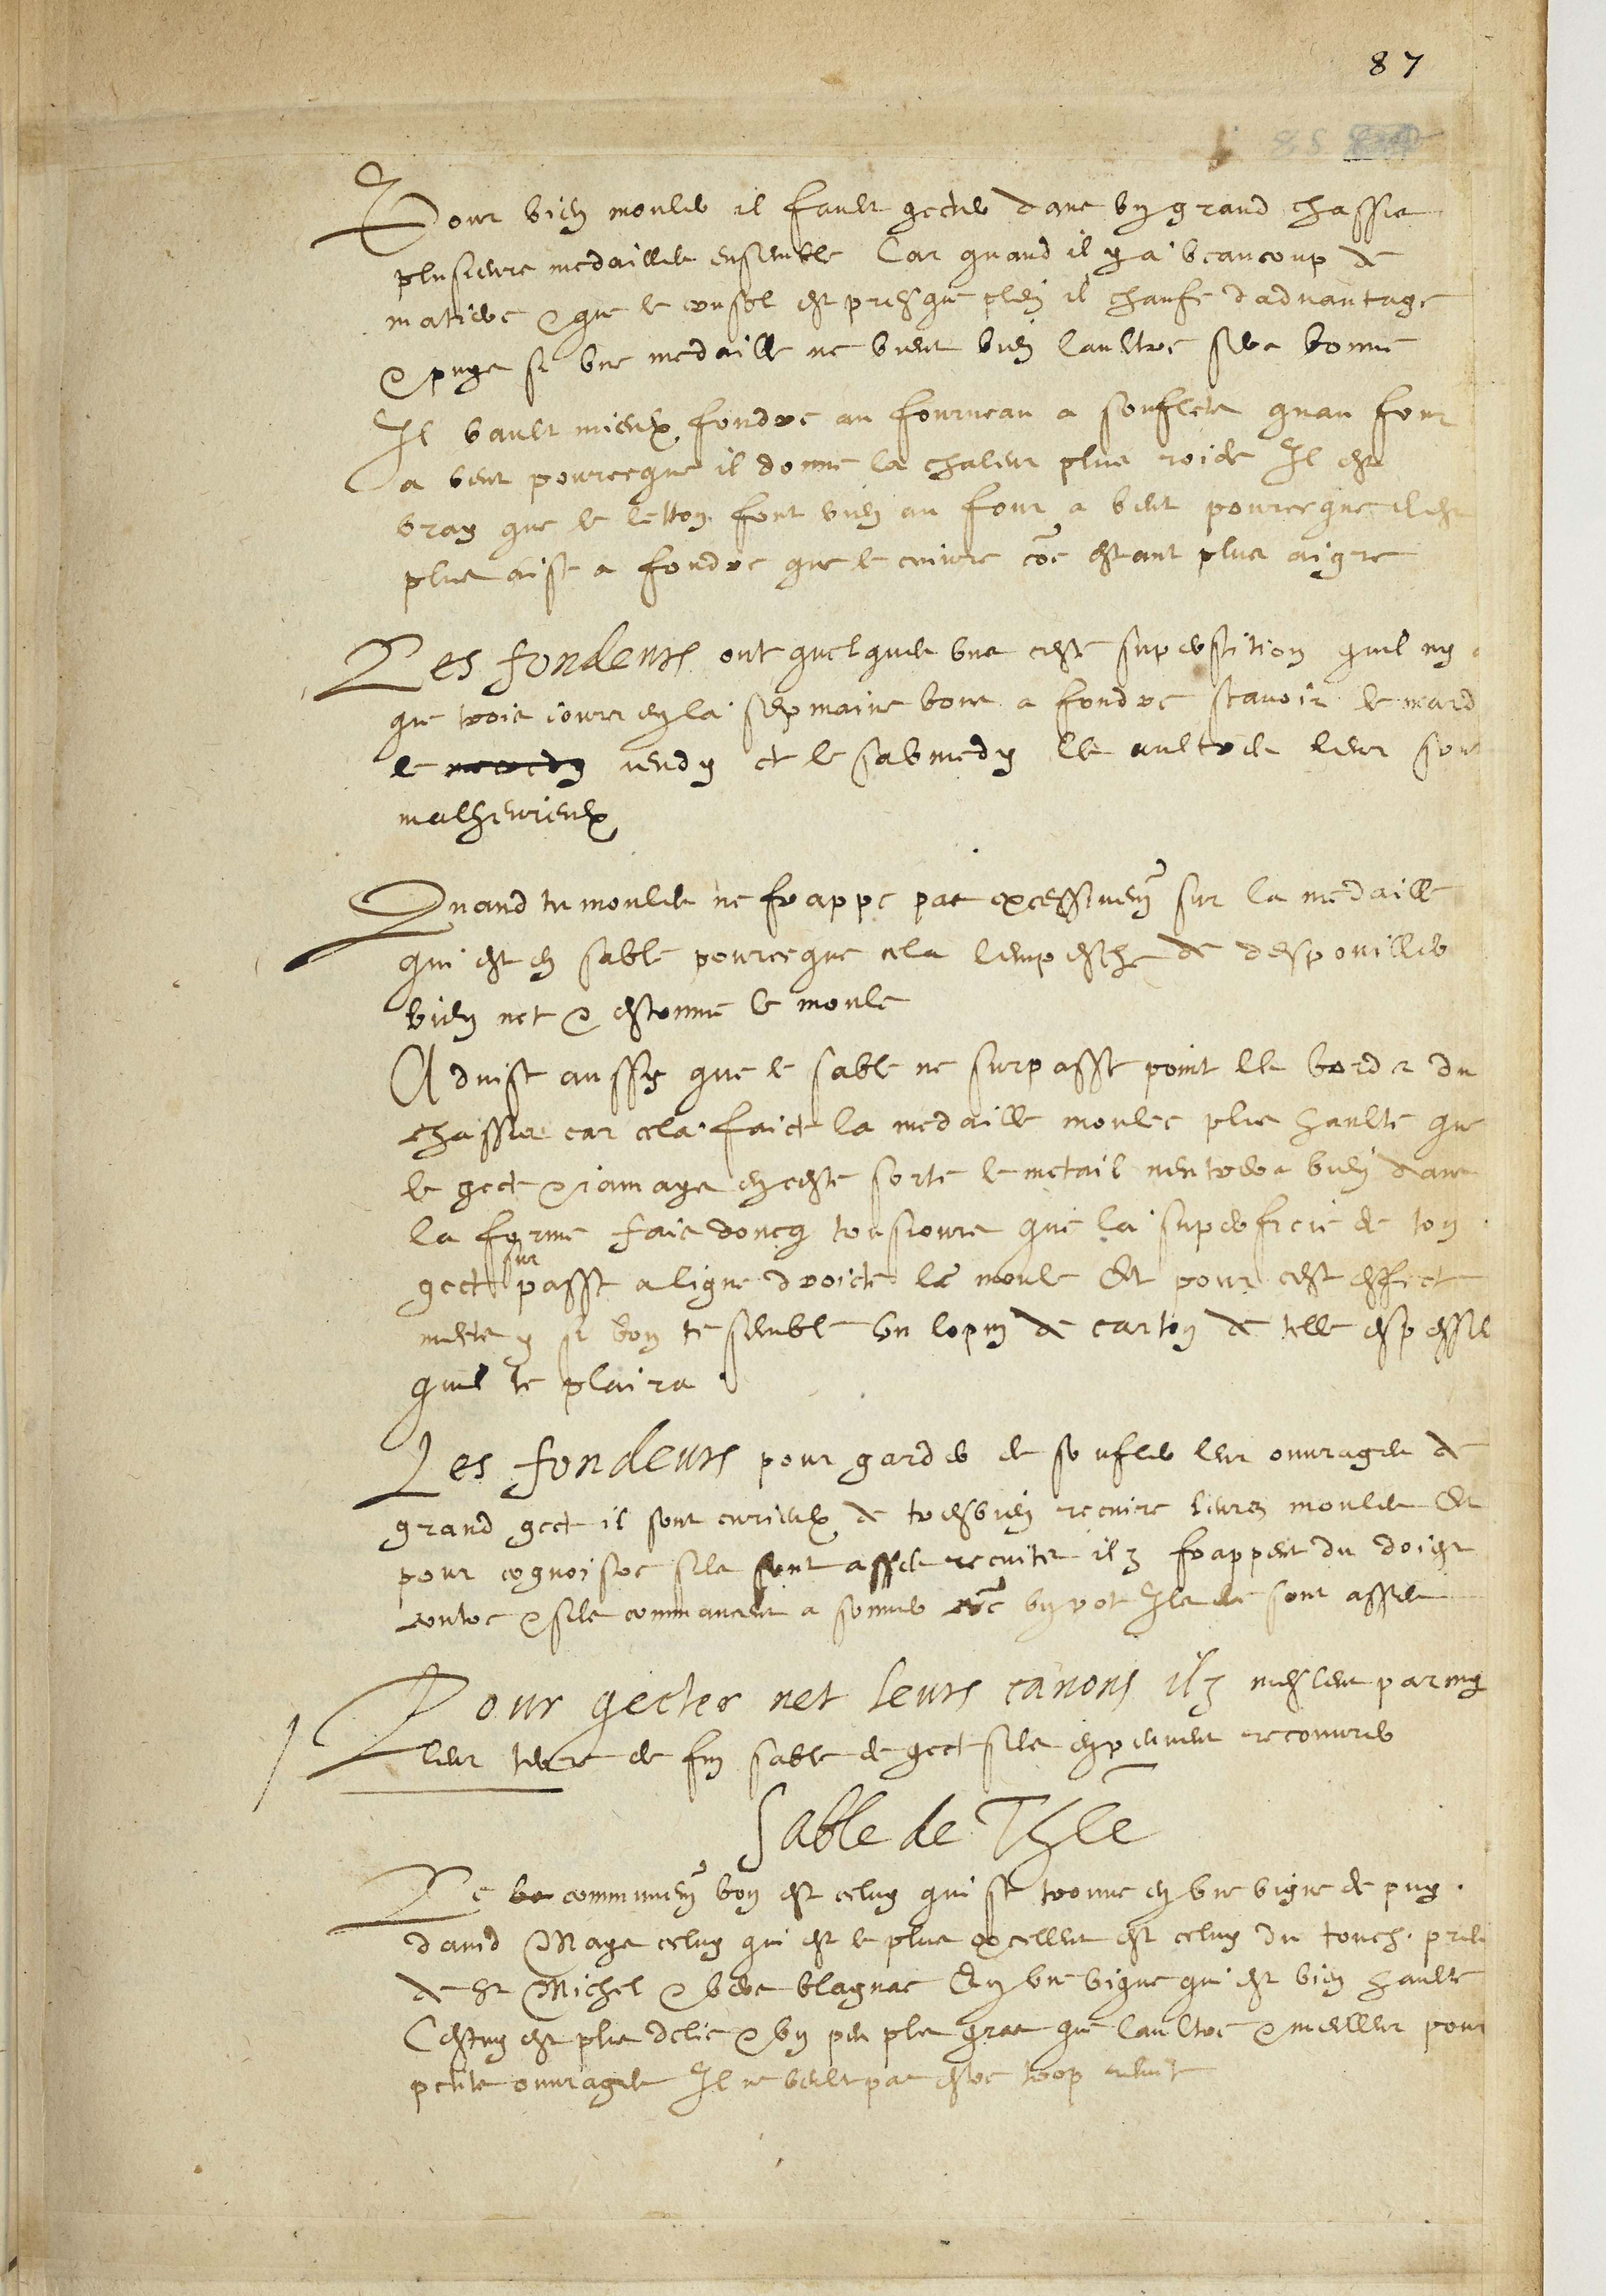 87
Pour bien mouler il fault gecter dans un grand chassis
plusieurs medailles ensemble Car quand il y a beaucoup de
matiere & que le creuset est presque plein il chaufe dadvantage
& puys si une medaille ne vient bien laultre sera bonne
Il vault mieulx fondre au fourneau a souflets quau four
a vent pourceque il donne la chaleur plus roide Il est
vray que le letton font bien au four a vent pourcequil est
plus aise a fondre que le cuivre coe estant plus aigre
Les fondeurs ont quelques uns ceste superstition quil ny a
que trois jours en la sepmaine bons a fondre scavoir le mard
le jeudy et le sabmedy les aultres leur sont
malheurieulx
Quand tu moules ne frappe pas excessivem sur la medaille
qui est en sable pourceque cela lempesche de despouiller
bien net & estonne le moule
Advise aussy que le sable ne surpasse point les bords du
chassis car cela faict la medaille moulee plus haulte que
le gect & jamays en ceste sorte le metail nentrera bien dans
la forme fais doncq tousjours que la superficie de ton
gect surpasse a ligne droicte le moule Et pour cest effect
mects y si bon te semble un lopin de carton de telle espesseur
quil te plaira
Les fondeurs pour garder de soufler leurs ouvrages de
grand gect il sont curieulx de tresbien recuire leurs moules Et
pour cognoistre sils sont asses recuits ilz frappent du doigt
contre & sils commancent a sonner coe un pot Ils le sont asses
Pour gecter net leurs canons ilz meslent parmy
leur terre de fin sable de gect sils en peuvent recouvrer
Sable de Thle
Le communem bon est celuy qui se trouve en une vigne de puy
david Mays celuy qui est le plus excellent est celuy du touch pres
de St Michel & vers blagnac En une vigne qui est bien haulte
Cestuy est plus delie & un peu plus gras que laultre & meilleur pour
petits ouvrages Il ne veult pas estre trop recuit